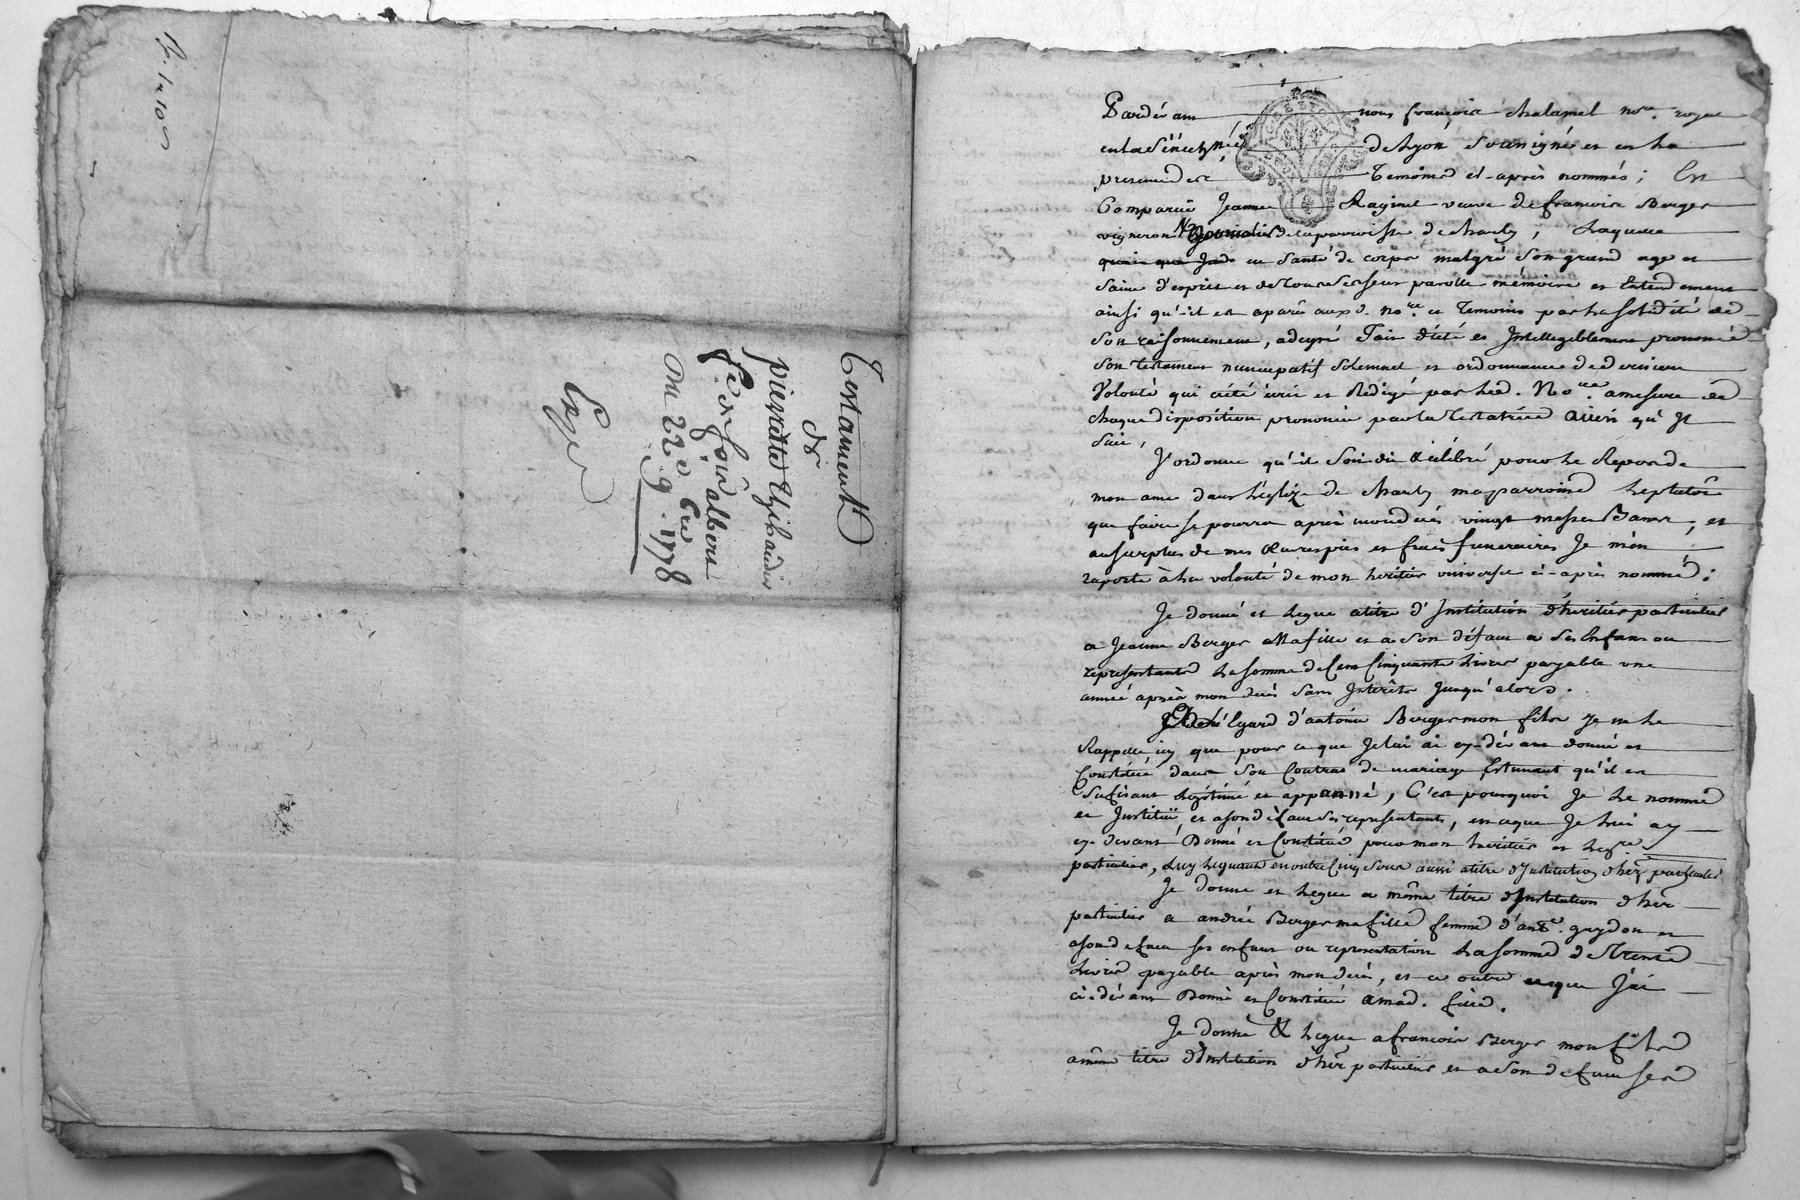 Testament
de
pierrette Thibaudier
fe. de fois albout
Du 22e 9bre 1778
Expé
Pardevant nous françois Chalamel nore. royal
en la Sénéchée de Lyon soussigné et en la
presence des Temoins ci-après nommés; Est
Comparüe Jeanne Raginel veuve de francois Berger
vigneron de la parroisse de Charly, Laquelle
en Santé de corps malgré Son grand age et
Saine d'esprit et de tous ses sens parolle mémoire et Entendement
ainsi qu'il est aparû aux d. nore. et Temoins par la solidité de
Son raisonnement, a de gré Fait dicté et Intellegiblement prononcé
Son Testament nuncupatif Solemnel et ordonnance de derniere
Volonté qui a été écrit et Redigé par led. Nore. amesure de
chaque disposition prononcée par la Testatrice ainsi qu'il
Suit,
J'ordonne qu'il Soit dit & célébré pour le Repos de
mon ame dans l'églize de Charly ma parroisse le plutôt
que faire se pourra après mon decés vingt messes Basses, et
au surplus de mes œuvres pies et frais funeraires Je m'en
raporte à la volonté de mon heritier universel ci-après nommé;
Je donne et Legue a titre d'Institution d'heritier particulier
a Jeanne Berger Ma fille et a Son défaut a Ses Enfans ou
representants La somme de Cent Cinquante Livres payable une
année après mon decés Sans Interêts Jusqu'alors.
l'Egard d'antoine Berger mon fils Je ne le
Rappelle icy que pour ce que Je lui ai cy-devant donné et
Constitué dans Son Contrat de mariage Estimant qu'il est
Sufisant Legitimé et appanné, C'est pourquoi Je le nomme
et Institüe et a son défaut Ses representants, en ce que Je lui ay
cy-devant Donné et Constitué pour mon heritier et Legre
particulier, Luy Leguant en outre Cinq Sous aussi a titre d'Institution d'her. particulier
Je donne et Legue a même titre d'Institution d'her.
particulier a andrée Berger ma fille femme d'ante. guydon et
a son defaut Ses enfans ou representation La somme de Trente
Livres payable après mon decès, et ce outre ce que J'ai
ci-devant Donné et Constitué a mad. fille.
Je donne & Legue a francois Berger mon fils
a même titre d'Institution d'her. particulier et a Son defaut Ses